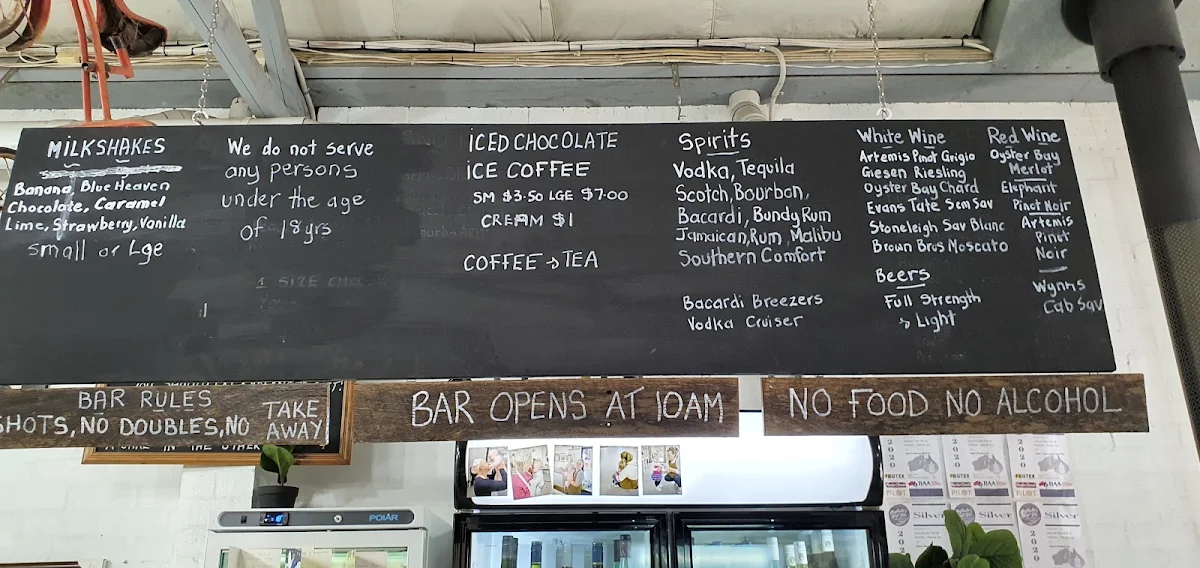 MILKSHAKES
Banana, Blue Heaven
Chocolate, Caramel
Lime, Strawberry, Vanilla
small or Lge
We do not serve
any persons
under the age
of 18yrs
1 SIZE
ICED CHOCOLATE
ICE COFFEE
SM $3.50 LGE $7.00
CREAM $1
COFFEE → TEA
Spirits
Vodka, Tequila
Scotch, Bourbon,
Bacardi, Bundy Rum
Jamaican, Rum, Malibu
Southern Comfort
Bacardi Breezers
Vodka Cruiser
White Wine
Artemis Pinot Grigio
Giesen Riesling
Oyster Bay Chard
Evans Tate Sem Sav
Stoneleigh Sav Blanc
Brown Bros Moscato
Beers
Full Strength
→ Light
Red Wine
Oyster Bay
Merlot
Elephant
Pinot Noir
Artemis
Pinot
Noir
Wynns
Cab Sav
BAR RULES
SHOTS, NO DOUBLES, NO TAKE
AWAY
BAR OPENS AT 10AM
NO FOOD NO ALCOHOL
POLAR
2020
2020
2020
PILOT
BAA
BAA
PILOT
BAA
Silver
Silver
Silver